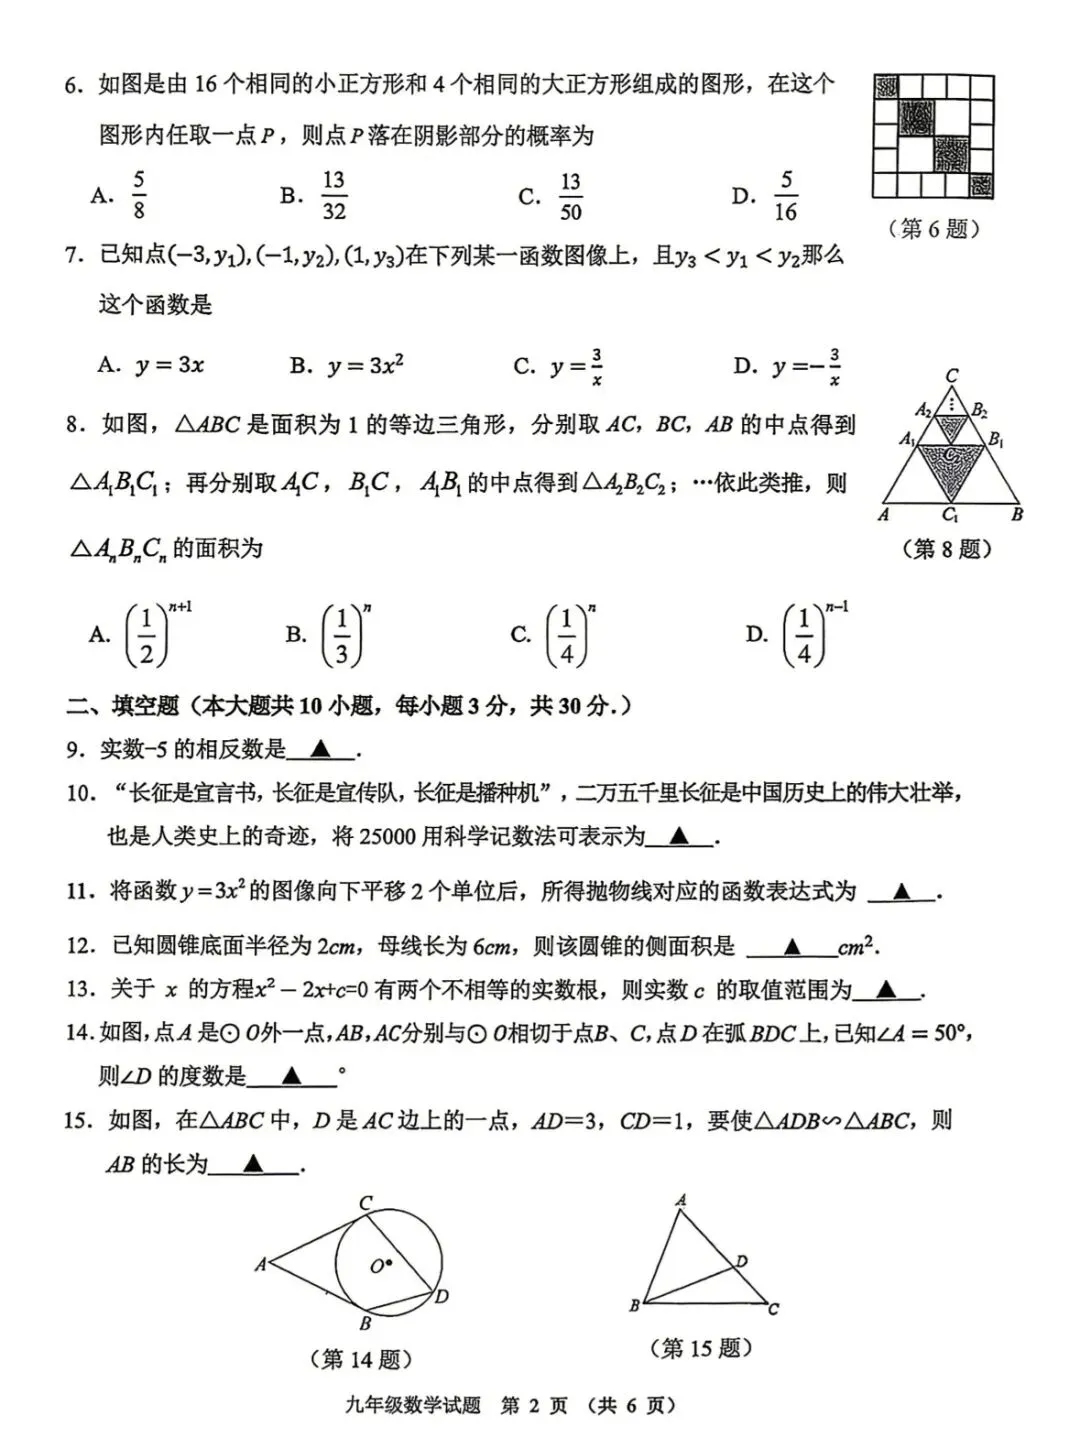 6. 如图是由 16 个相同的小正方形和 4 个相同的大正方形组成的图形，在这个
图形内任取一点 P，则点 P 落在阴影部分的概率为
A. 5/8 B. 13/32 C. 13/50 D. 5/16
（第 6 题）
7. 已知点(−3,y₁),(−1,y₂),(1,y₃)在下列某一函数图像上，且y₃ < y₁ < y₂那么
这个函数是
A. y = 3x B. y = 3x² C. y = 3/x D. y =−3/x
8. 如图，△ABC 是面积为 1 的等边三角形，分别取 AC，BC，AB 的中点得到
△A₁B₁C₁；再分别取 A₁C，B₁C，A₁B₁ 的中点得到 △A₂B₂C₂；…依此类推，则
△AₙBₙCₙ 的面积为
C
A₂ B₂
A₁ C₂ B₁
A C₁ B
（第 8 题）
A. (1/2)ⁿ⁺¹ B. (1/3)ⁿ C. (1/4)ⁿ D. (1/4)ⁿ⁻¹
二、填空题（本大题共 10 小题，每小题 3 分，共 30 分.）
9. 实数−5 的相反数是▲.
10. “长征是宣言书，长征是宣传队，长征是播种机”，二万五千里长征是中国历史上的伟大壮举，
也是人类史上的奇迹，将 25000 用科学记数法可表示为▲.
11. 将函数 y=3x² 的图像向下平移 2 个单位后，所得抛物线对应的函数表达式为 ▲.
12. 已知圆锥底面半径为 2cm，母线长为 6cm，则该圆锥的侧面积是 ▲cm².
13. 关于 x 的方程x² − 2x+c=0 有两个不相等的实数根，则实数 c 的取值范围为▲.
14. 如图，点A 是⊙O外一点，AB，AC分别与⊙O相切于点B、C，点 D 在弧 BDC 上，已知∠A = 50°，
则∠D 的度数是▲°
15. 如图，在△ABC 中，D 是 AC 边上的一点，AD＝3，CD＝1，要使△ADB∽△ABC，则
AB 的长为▲.
C
A O D
B
（第 14 题）
A
D
B C
（第 15 题）
九年级数学试题 第 2 页 （共 6 页）